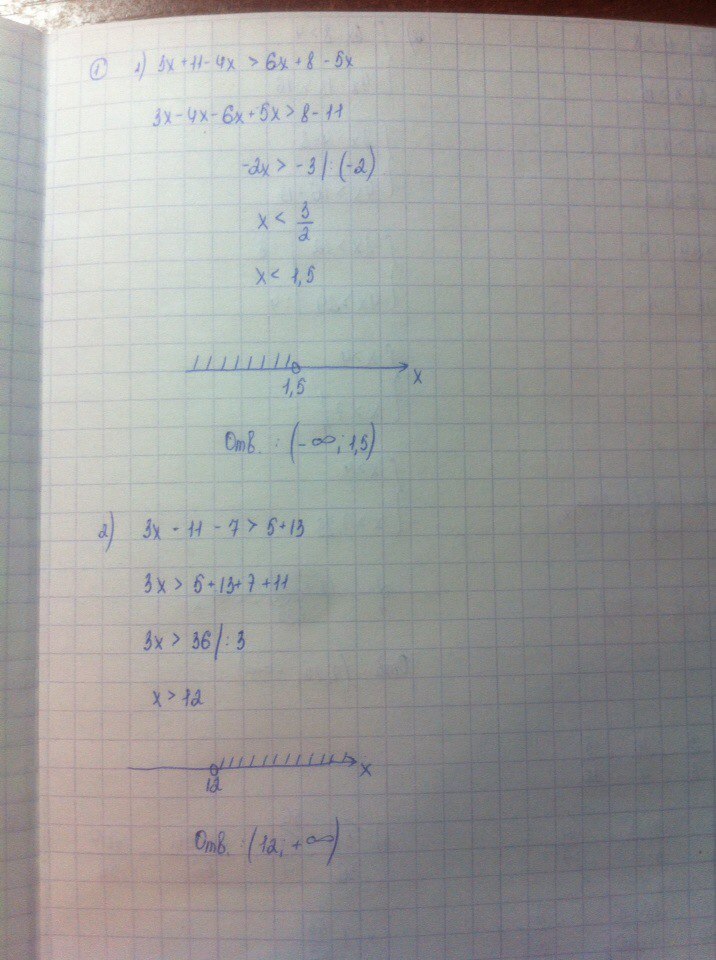 ① 1) 3x + 11 - 4x > 6x + 8 - 5x
3x - 4x - 6x + 5x > 8 - 11
-2x > -3 | : (-2)
x < 3/2
x < 1,5
1,5 x
Отв. : (-∞; 1,5)
2) 3x - 11 - 7 > 5 + 13
3x > 5 + 13 + 7 + 11
3x > 36 | : 3
x > 12
12 x
Отв. : (12; +∞)